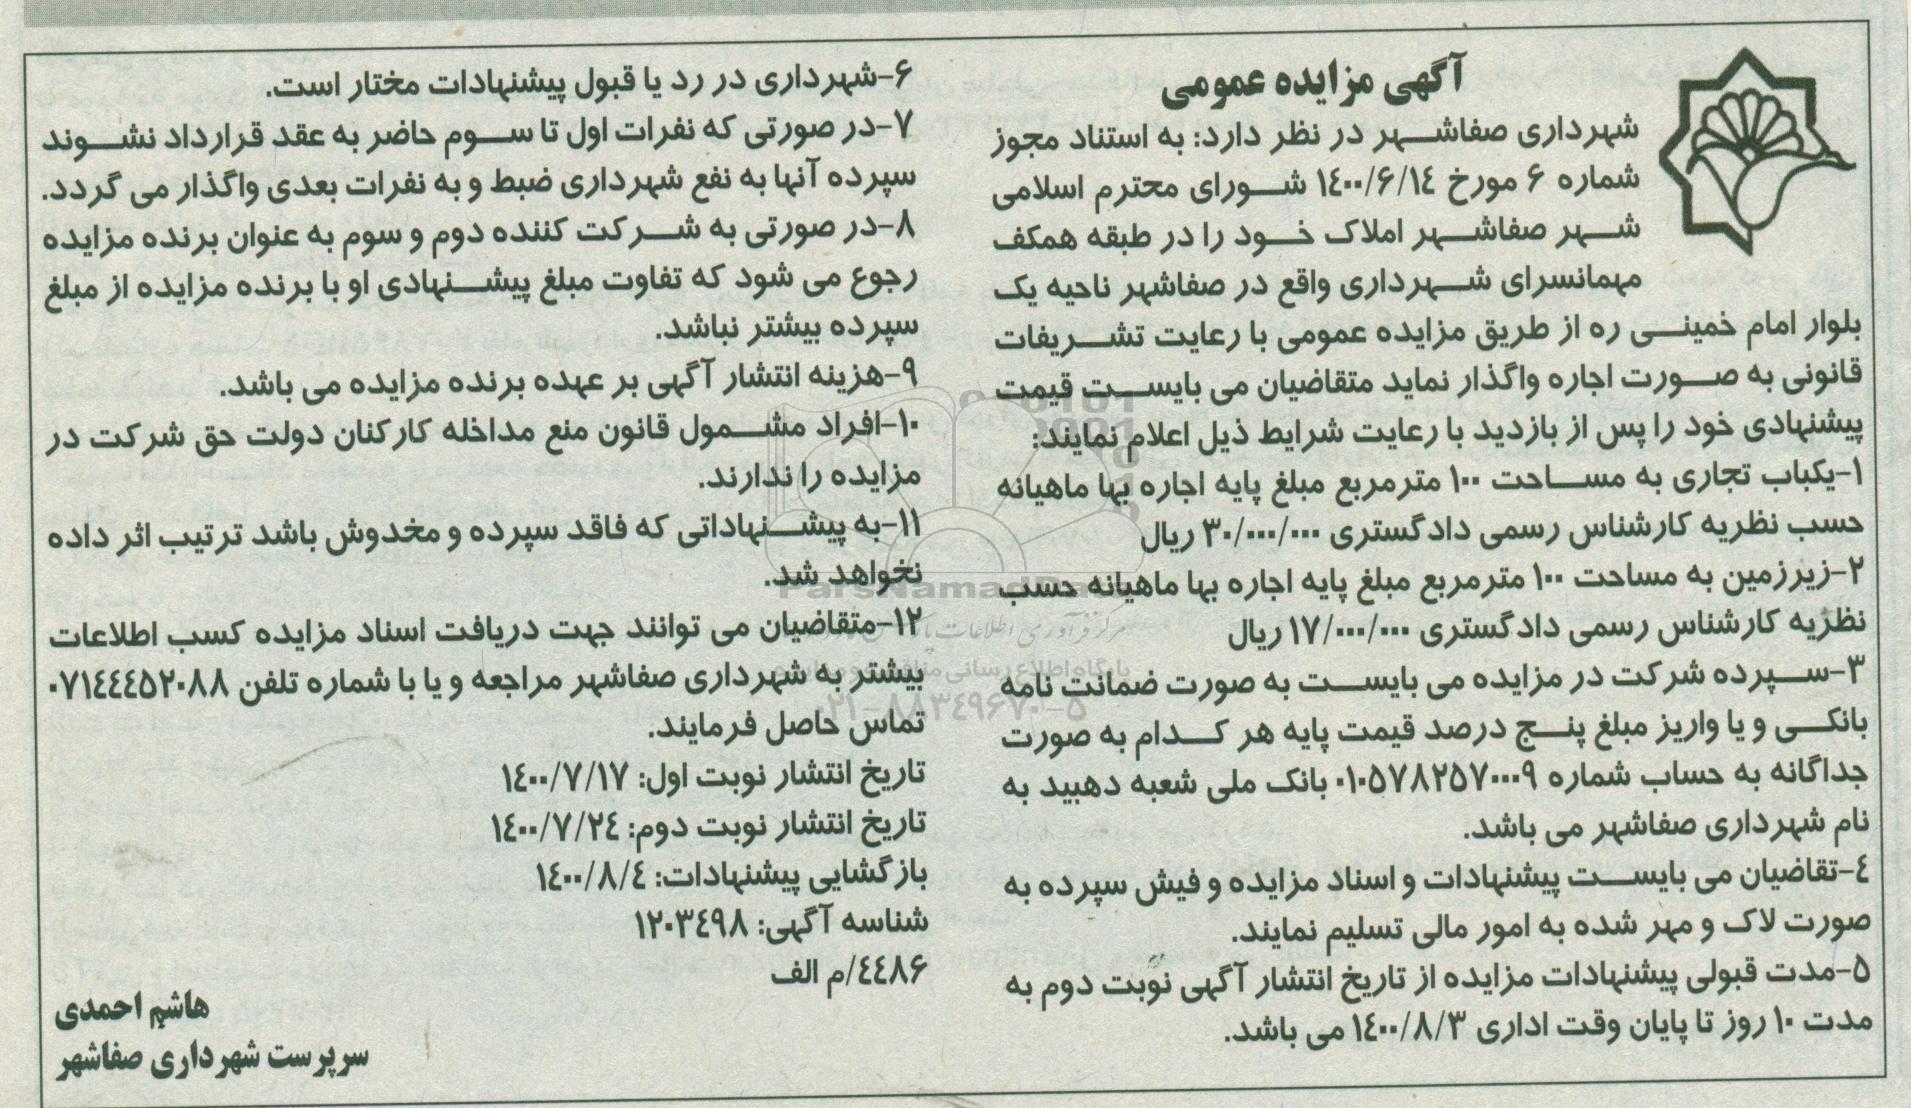 آگهی مزایده عمومی
شهرداری صفاشهر در نظر دارد: به استناد مجوز
شماره ۶ مورخ ۱۴۰۰/۶/۱۴ شورای محترم اسلامی
شهر صفاشهر املاک خود را در طبقه همکف
مهمانسرای شهرداری واقع در صفاشهر ناحیه یک
بلوار امام خمینی ره از طریق مزایده عمومی با رعایت تشریفات
قانونی به صورت اجاره واگذار نماید متقاضیان می بایست قیمت
پیشنهادی خود را پس از بازدید با رعایت شرایط ذیل اعلام نمایند:
۱-یکباب تجاری به مساحت ۱۰۰ مترمربع مبلغ پایه اجاره بها ماهیانه
حسب نظریه کارشناس رسمی دادگستری ۳۰/۰۰۰/۰۰۰ ریال
۲-زیرزمین به مساحت ۱۰۰ مترمربع مبلغ پایه اجاره بها ماهیانه حسب
نظریه کارشناس رسمی دادگستری ۱۷/۰۰۰/۰۰۰ ریال
۳-سپرده شرکت در مزایده می بایست به صورت ضمانت نامه
بانکی و یا واریز مبلغ پنج درصد قیمت پایه هر کدام به صورت
جداگانه به حساب شماره ۰۱۰۵۷۸۲۵۷۰۰۰۹ بانک ملی شعبه دهبید به
نام شهرداری صفاشهر می باشد.
۴-تقاضیان می بایست پیشنهادات و اسناد مزایده و فیش سپرده به
صورت لاک و مهر شده به امور مالی تسلیم نمایند.
۵-مدت قبولی پیشنهادات مزایده از تاریخ انتشار آگهی نوبت دوم به
مدت ۱۰ روز تا پایان وقت اداری ۱۴۰۰/۸/۳ می باشد.
۶-شهرداری در رد یا قبول پیشنهادات مختار است.
۷-در صورتی که نفرات اول تا سوم حاضر به عقد قرارداد نشوند
سپرده آنها به نفع شهرداری ضبط و به نفرات بعدی واگذار می گردد.
۸-در صورتی به شرکت کننده دوم و سوم به عنوان برنده مزایده
رجوع می شود که تفاوت مبلغ پیشنهادی او با برنده مزایده از مبلغ
سپرده بیشتر نباشد.
۹-هزینه انتشار آگهی بر عهده برنده مزایده می باشد.
۱۰-افراد مشمول قانون منع مداخله کارکنان دولت حق شرکت در
مزایده را ندارند.
۱۱-به پیشنهاداتی که فاقد سپرده و مخدوش باشد ترتیب اثر داده
نخواهد شد.
۱۲-متقاضیان می توانند جهت دریافت اسناد مزایده کسب اطلاعات
بیشتر به شهرداری صفاشهر مراجعه و یا با شماره تلفن ۰۷۱۴۴۴۵۲۰۸۸
تماس حاصل فرمایند.
تاریخ انتشار نوبت اول: ۱۴۰۰/۷/۱۷
تاریخ انتشار نوبت دوم: ۱۴۰۰/۷/۲۴
بازگشایی پیشنهادات: ۱۴۰۰/۸/۴
شناسه آگهی: ۱۲۰۳۴۹۸
۴۴۸۶/م الف
هاشم احمدی
سرپرست شهرداری صفاشهر
ParsNamadData
پایگاه اطلاع رسانی مناقصه و مزایده
۰۲۱-۸۸۳۴۹۶۷۰-۵